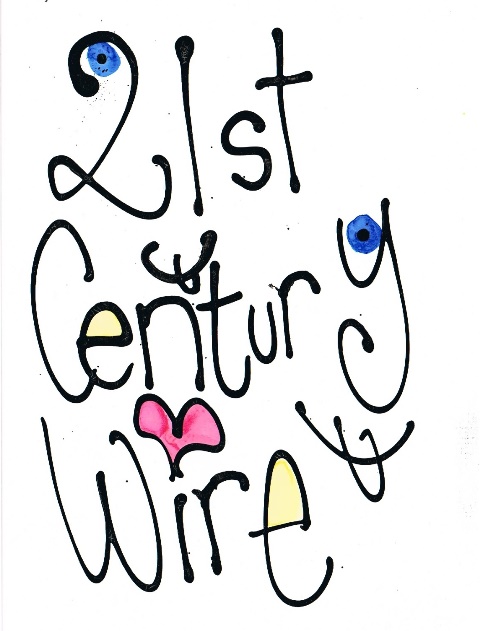 21st
Century
Wire